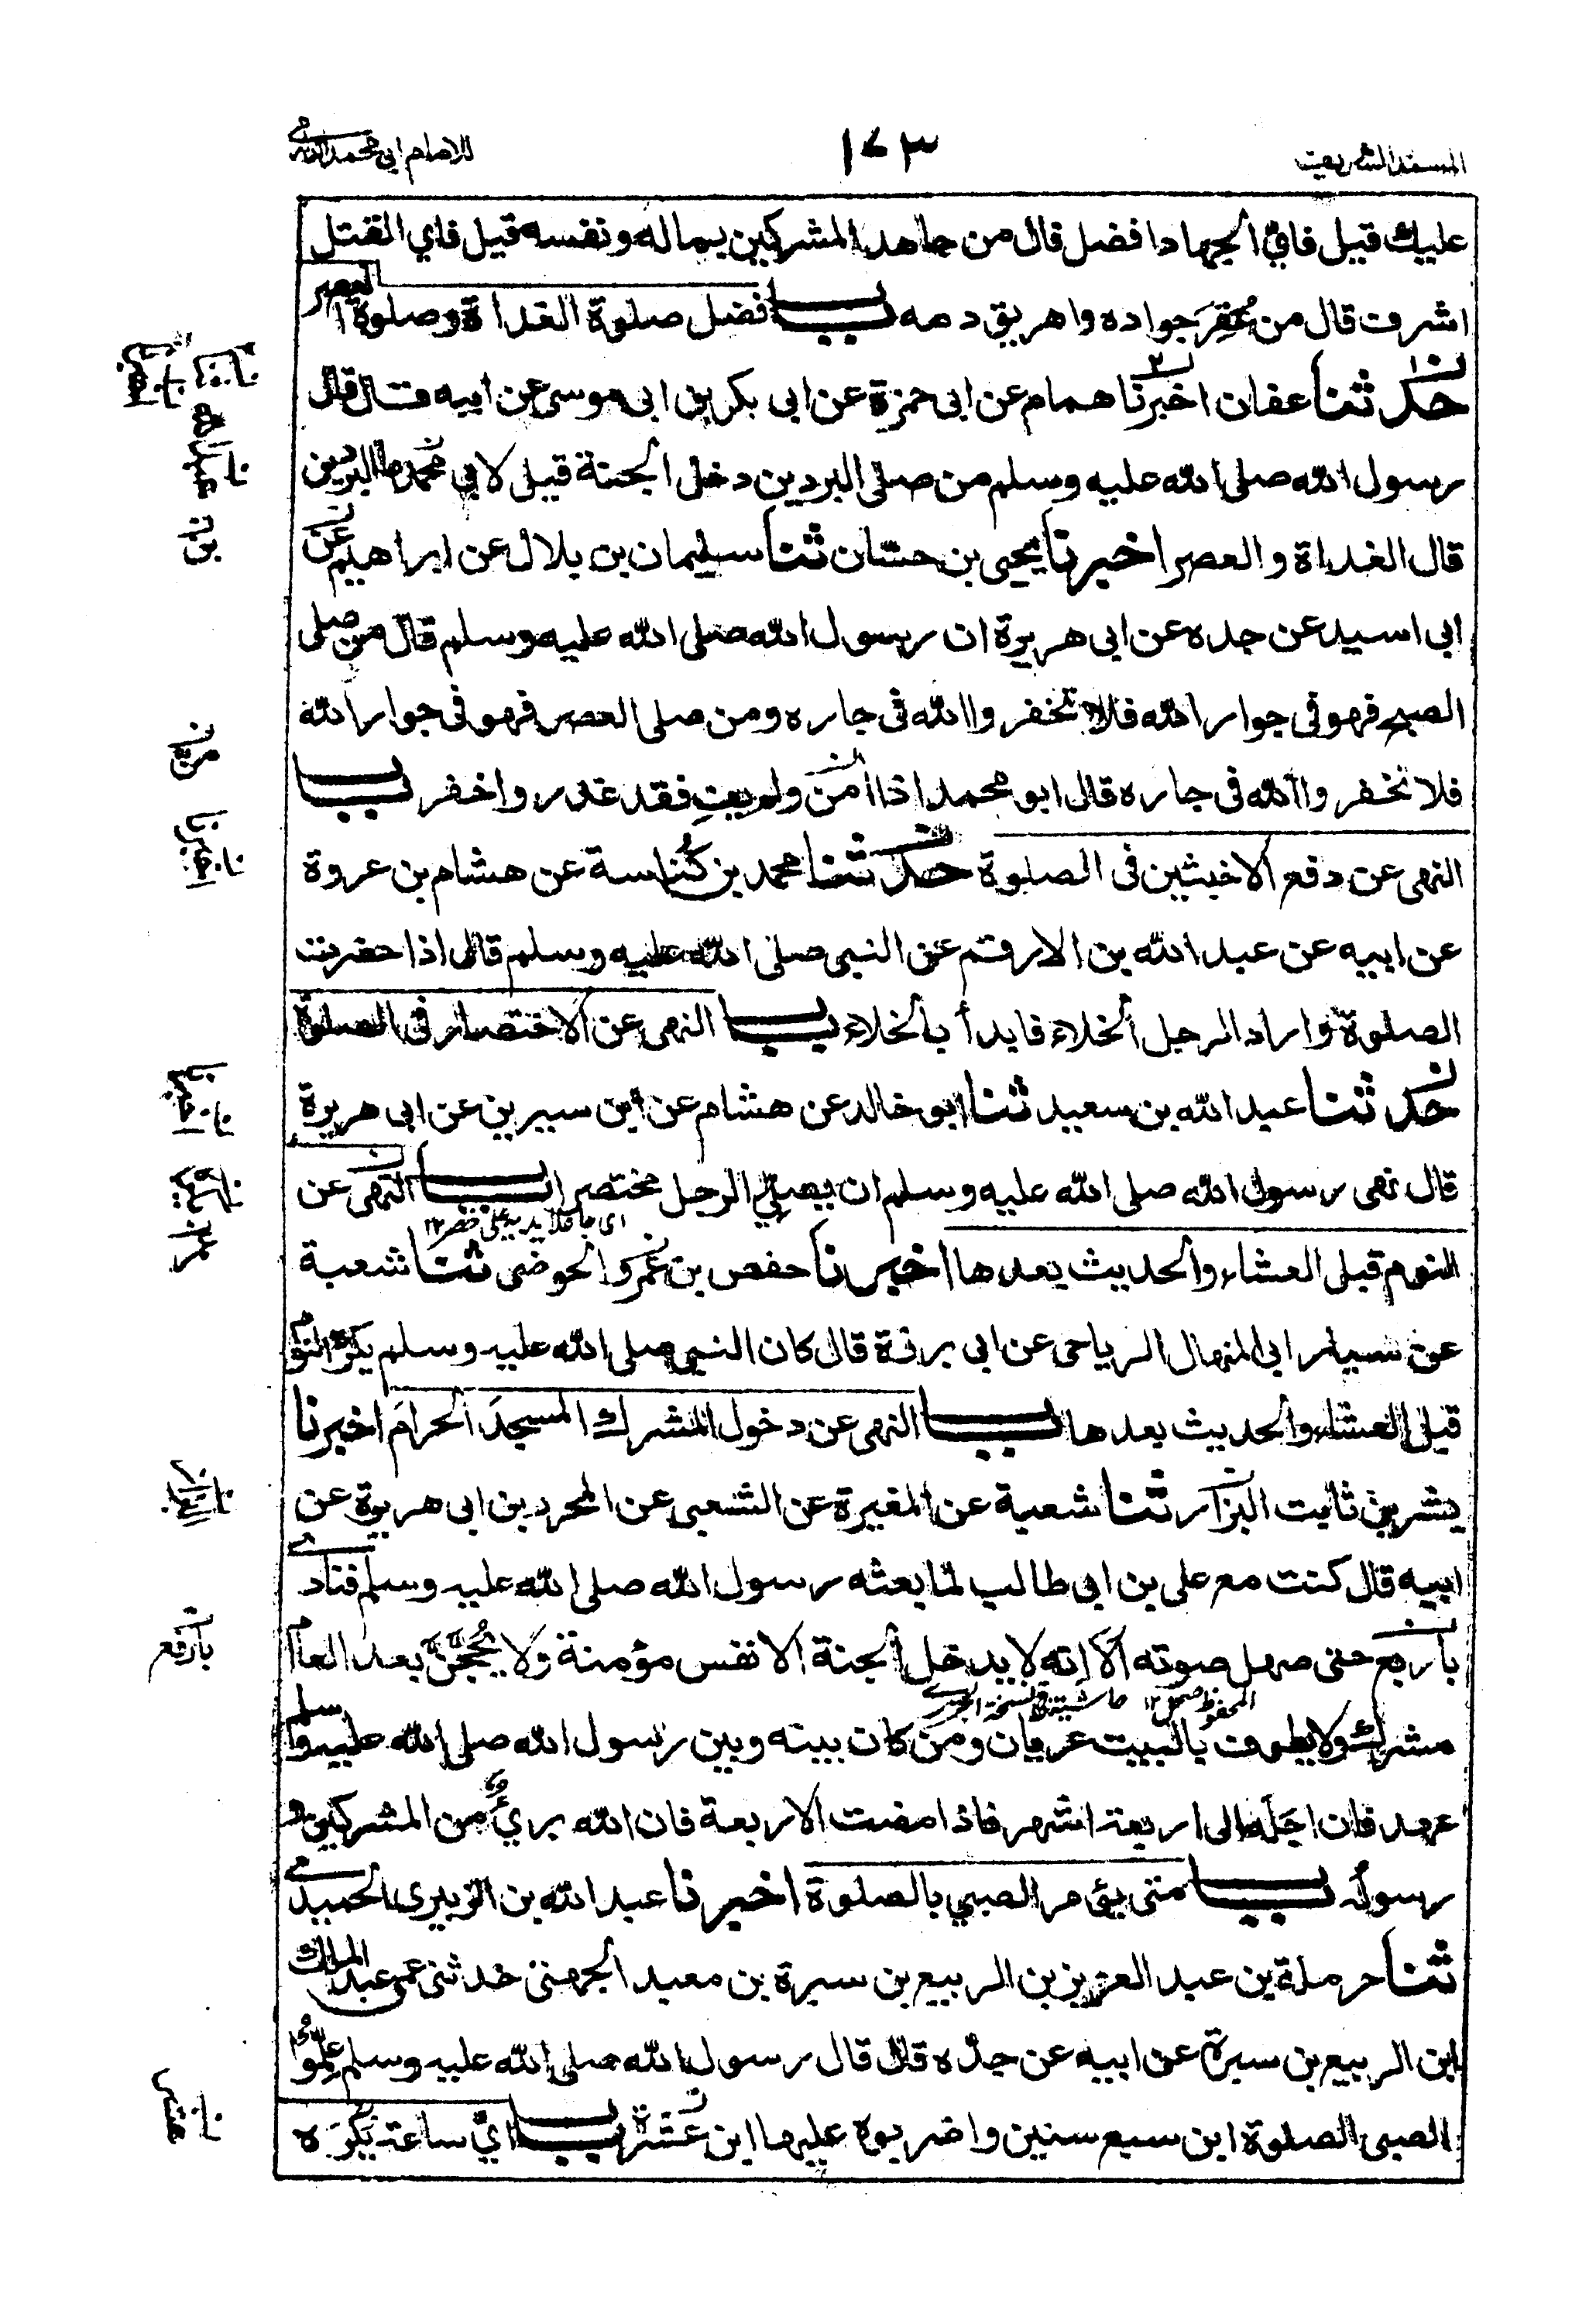 المسند الشريف
١٧٣
للامام ابي محمد الدارمي
عليك قيل فاي الجهاد افضل قال من جاهد المشركين بماله ونفسه قيل فاي القتل
اشرف قال من عُقِرَ جواده واهريق دمه باب فضل صلوة الغداة وصلوة العصر
حدثنا عفان اخبرنا همام عن ابى حمزة عن ابى بكر بن ابى موسى عن ابيه قال قال
رسول الله صلى الله عليه وسلم من صلى البردين دخل الجنة قيل لابي محمد ما البردين
قال الغداة والعصر اخبرنا يحيى بن حسّان ثنا سليمان بن بلال عن ابراهيم عن
ابى اسيد عن جده عن ابى هريرة ان رسول الله صلى الله عليه وسلم قال من صلى
الصبح فهو فى جوار الله فلا تخفروا الله فى جاره ومن صلى العصر فهو فى جوار الله
فلا تخفروا الله فى جاره قال ابو محمد اذا امن ولم يفِ فقد غدر واخفر باب
النهى عن دفع الاخبثين فى الصلوة حدثنا محمد بن كُناسة عن هشام بن عروة
عن ابيه عن عبد الله بن الارقم عن النبى صلى الله عليه وسلم قال اذا حضرت
الصلوة واراد الرجل الخلاء فابدأ بالخلاء باب النهى عن الاختصار فى الصلوة
حدثنا عبد الله بن سعيد ثنا ابو خالد عن هشام عن ابن سيرين عن ابى هريرة
قال نهى رسول الله صلى الله عليه وسلم ان يصلي الرجل مختصرا باب النهى عن
النوم قبل العشاء والحديث بعدها اخبرنا حفص بن عمرو الحوضى ثنا شعبة
عن سيار ابى المنهال الرياحى عن ابى برزة قال كان النبى صلى الله عليه وسلم يكره النوم
قبل العشاء والحديث بعدها باب النهى عن دخول المشرك المسجدَ الحرامَ اخبرنا
بشر بن ثابت البزار ثنا شعبة عن المغيرة عن الشعبى عن المحرر بن ابى هريرة عن
ابيه قال كنت مع على بن ابى طالب لمّا بعثه رسول الله صلى الله عليه وسلم فنادى
باربع حتى صهل صوته ألا إنه لا يدخل الجنة الا نفس مؤمنة ولا يَحُجَّنَّ بعد العام
مشرك ولا يطوف بالبيت عريان ومن كان بينه وبين رسول الله صلى الله عليه وسلم
عهد فان اجَلَه الى اربعة اشهر فاذا مضت الاربعة فان الله بريٌ من المشركين و
رسوله باب متى يؤمر الصبي بالصلوة اخبرنا عبد الله بن الزبيرى الحميدى
ثنا حرملة بن عبد العزيز بن الربيع بن سبرة بن معبد الجهنى حدثنى عمى عبد الملك
ابن الربيع بن سبرة عن ابيه عن جدّه قال قال رسول الله صلى الله عليه وسلم علِّموا
الصبى الصلوة ابن سبع سنين واضربوه عليها ابن عشرة باب ايّ ساعة يكره
بارفع